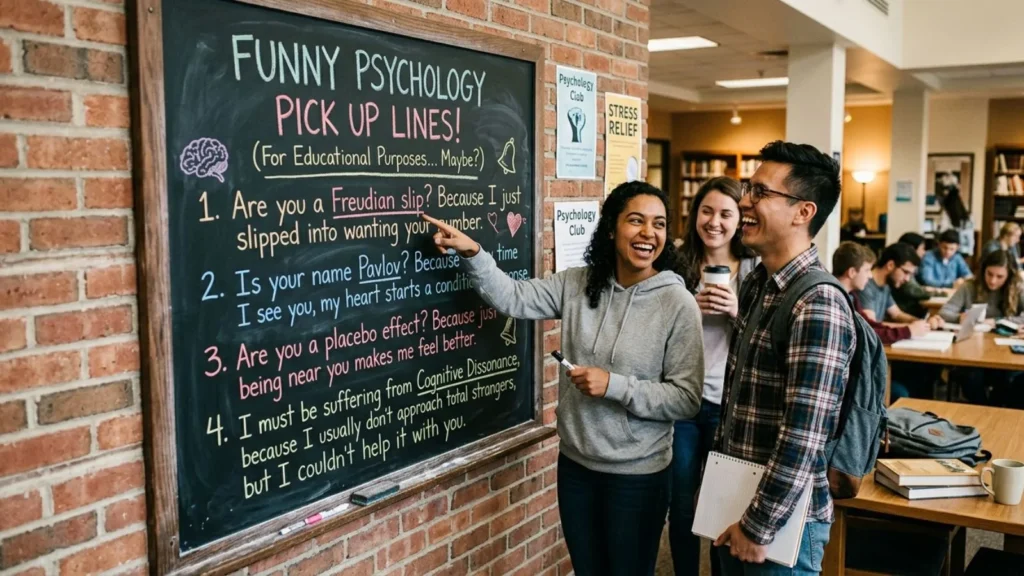 FUNNY PSYCHOLOGY
PICK UP LINES!
(For Educational Purposes... Maybe?)
1. Are you a Freudian slip? Because I just
slipped into wanting your number.
2. Is your name Pavlov? Because time
I see you, my heart starts a
3. Are you a placebo effect? Because just
being near you makes me feel better.
4. I must be suffering from Cognitive Dissonance,
because I usually don't approach total strangers,
but I couldn't help it with you.
Psychology
Club
STRESS
RELIEF
Psychology
Club